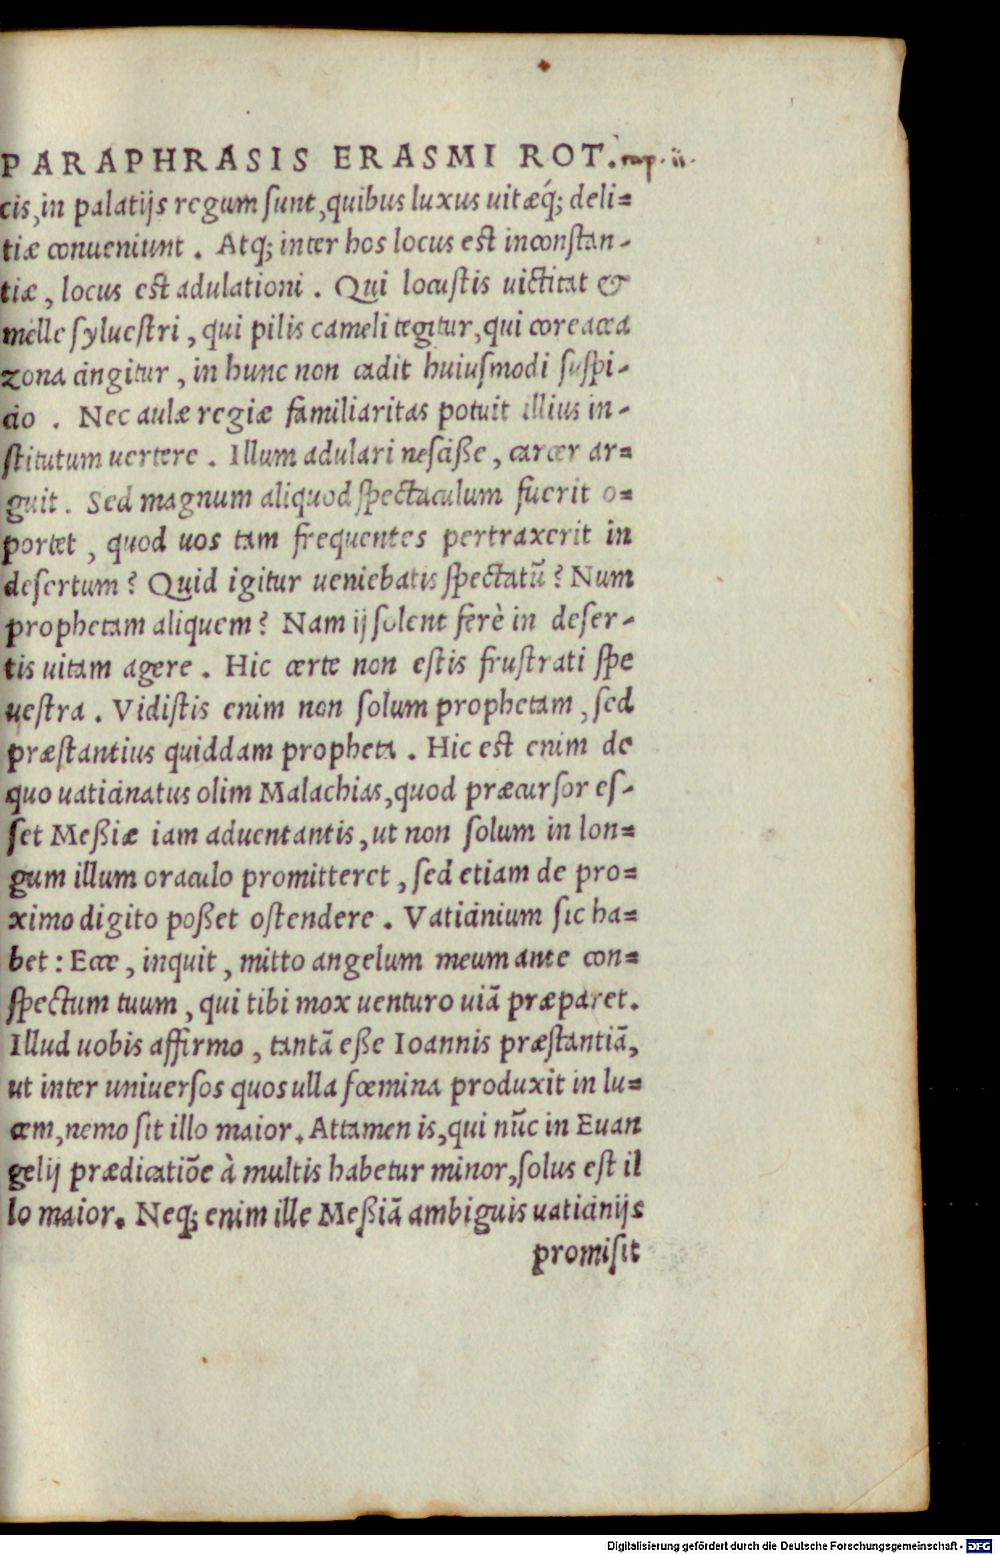 PARAPHRASIS ERASMI ROT. cap. ii.
cis, in palatijs regum sunt, quibus luxus uitæq́; deli=
tiæ conueniunt. Atq; inter hos locus est inconstan-
tiæ, locus est adulationi. Qui locustis uictitat &
melle syluestri, qui pilis cameli tegitur, qui coreacea
zona cingitur, in hunc non cadit huiusmodi suspi-
cio. Nec aulæ regiæ familiaritas potuit illius in-
stitutum uertere. Illum adulari nesciße, carcer ar=
guit. Sed magnum aliquod spectaculum fuerit o=
portet, quod uos tam frequentes pertraxerit in
desertum? Quid igitur ueniebatis spectatũ? Num
prophetam aliquem? Nam ij solent ferè in deser-
tis uitam agere. Hic certe non estis frustrati spe
uestra. Vidistis enim non solum prophetam, sed
præstantius quiddam propheta. Hic est enim de
quo uaticinatus olim Malachias, quod præcursor es-
set Meßiæ iam aduentantis, ut non solum in lon=
gum illum oraculo promitteret, sed etiam de pro=
ximo digito poßet ostendere. Vaticinium sic ha=
bet: Ecce, inquit, mitto angelum meum ante con=
spectum tuum, qui tibi mox uenturo uiã præparet.
Illud uobis affirmo, tantã eße Ioannis præstantiã,
ut inter uniuersos quos ulla fœmina produxit in lu=
cem, nemo sit illo maior. Attamen is, qui nũc in Euan
gelij prædicatiõe à multis habetur minor, solus est il
lo maior. Neq; enim ille Meßiã ambiguis uaticinijs
promisit
Digitalisierung gefördert durch die Deutsche Forschungsgemeinschaft - DFG